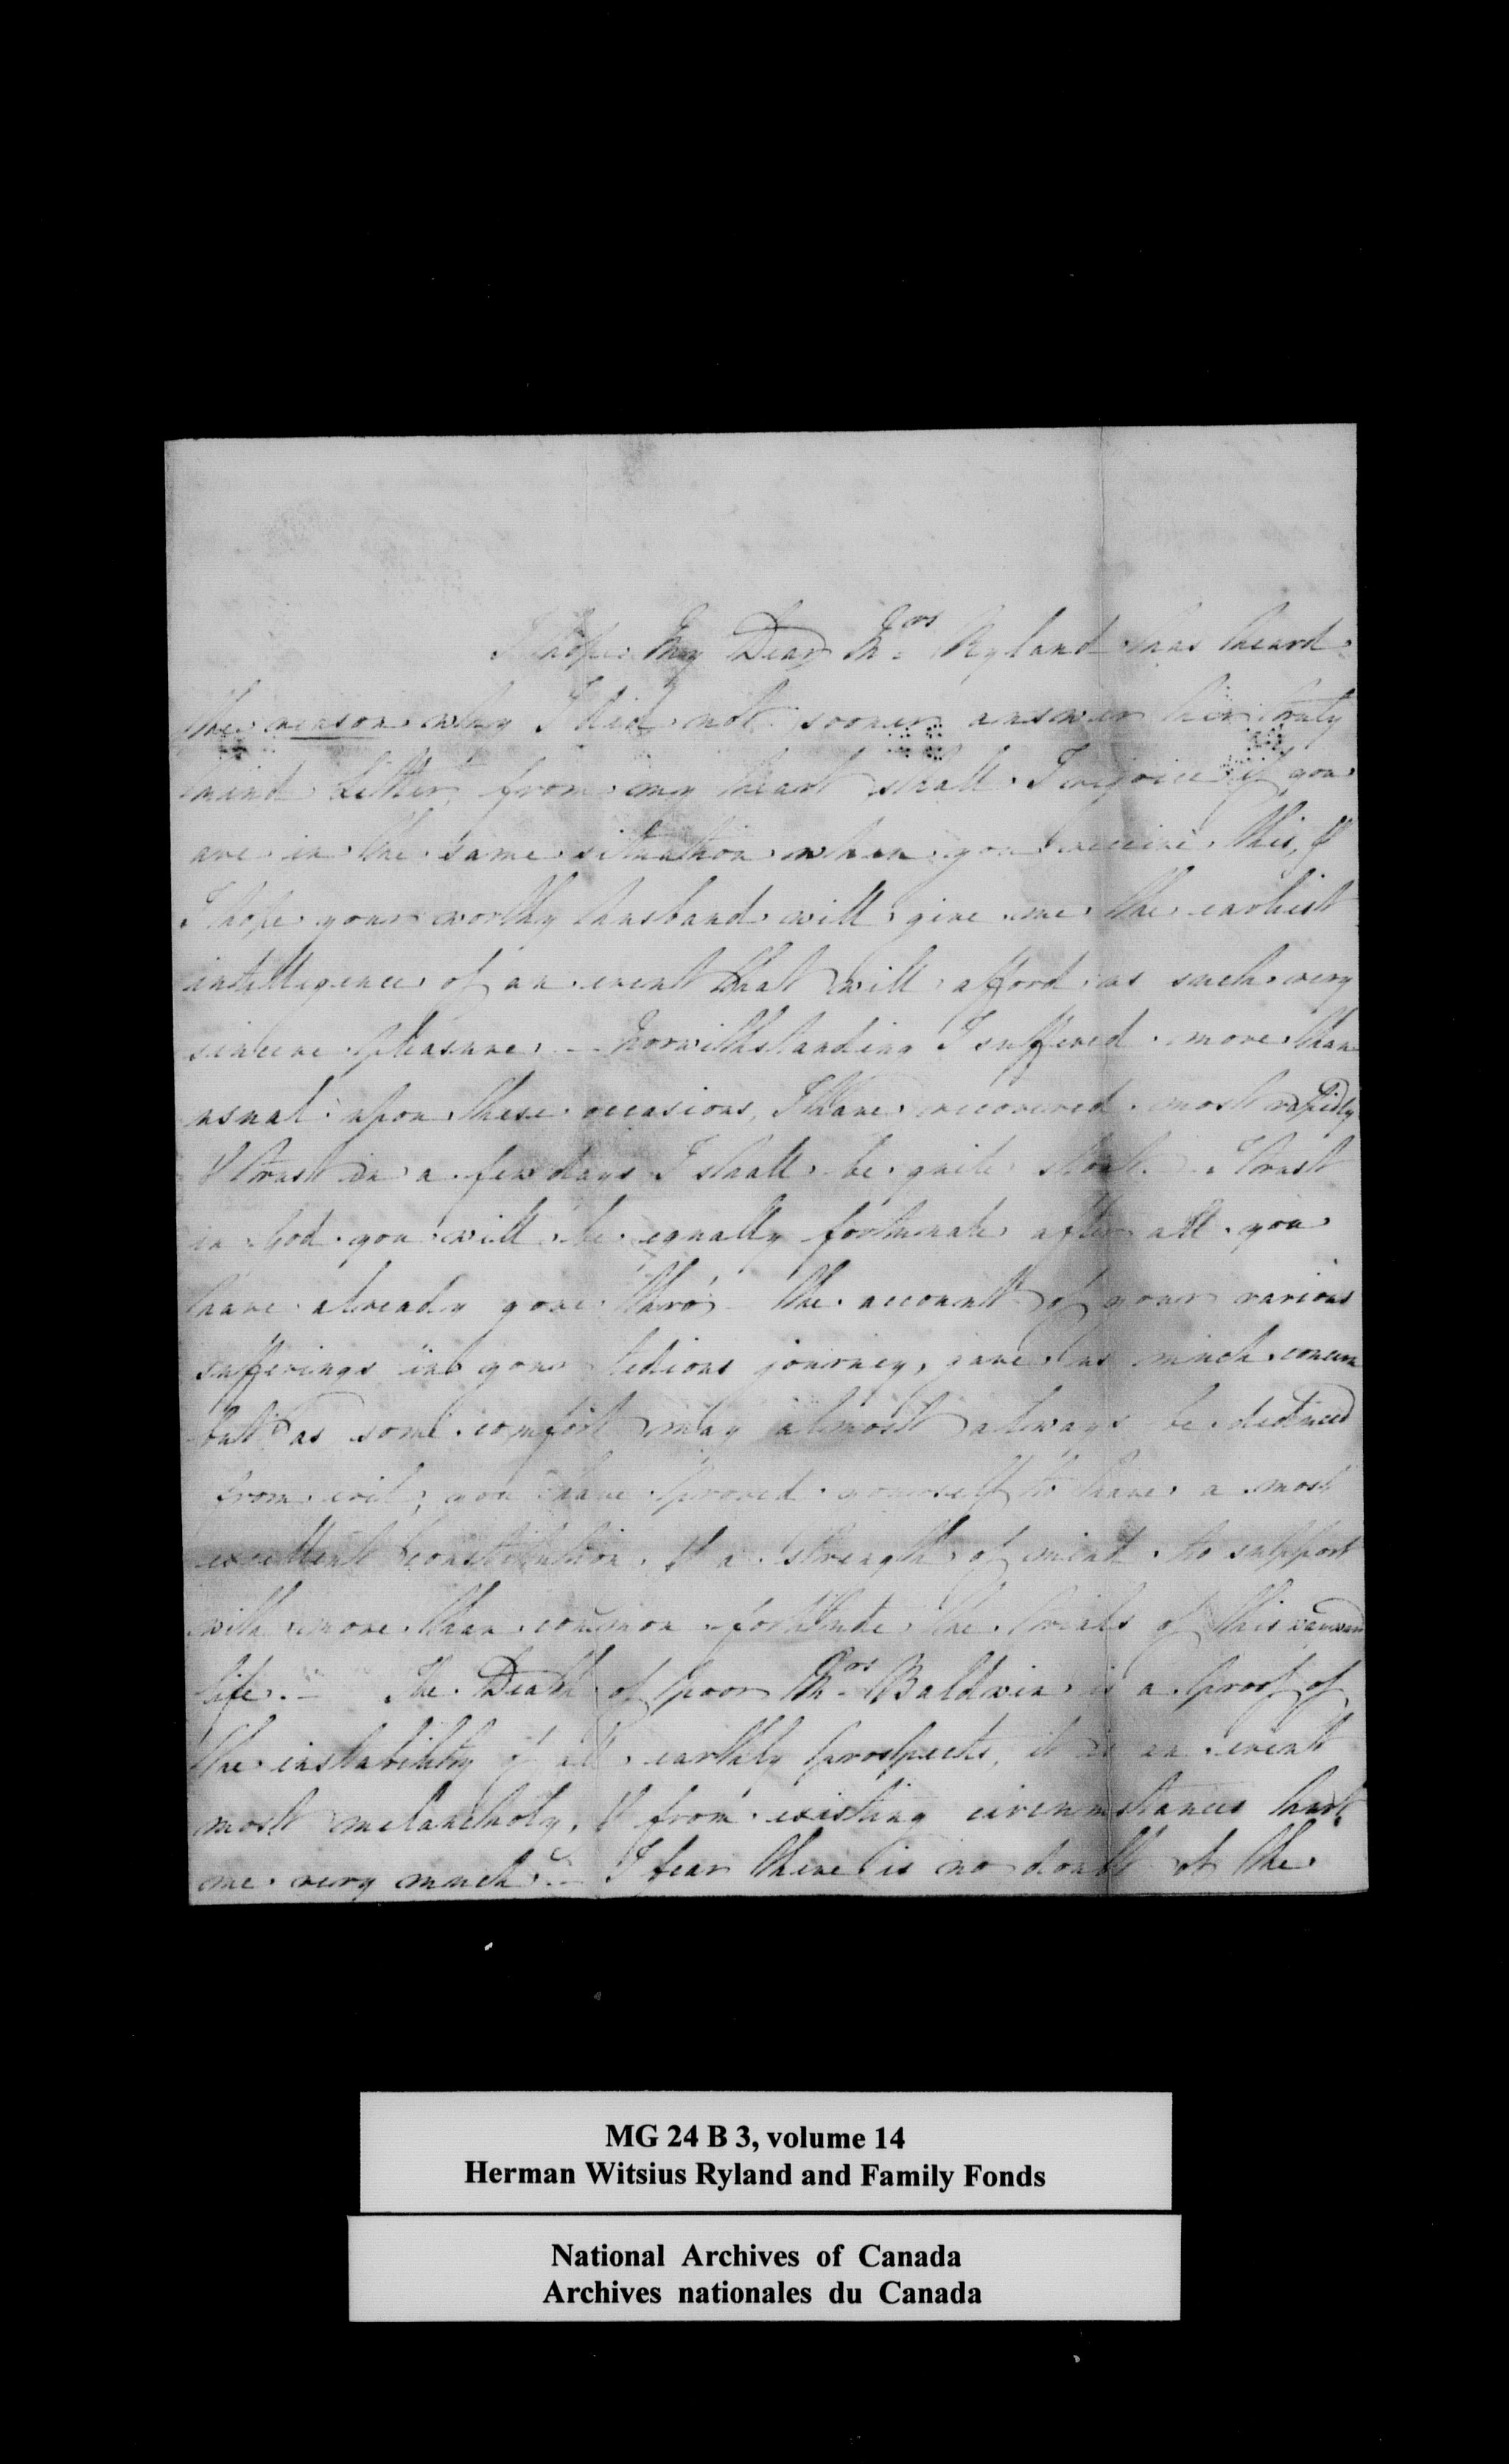 I hope My Dear Mrs Ryland has heard
the reason why I did not sooner answer her truly
kind Letter, from my heart shall I rejoice if you
are in the same situation when you receive this, &
I hope your worthy husband will give me the earliest
intelligence of an event that will afford us such very
sincere pleasure. - Norwithstanding I suffered more than
usual upon these occasions, I have recovered most rapidly
& trust in a few days I shall be quite stout. - I trust
in God you will be equally fortunate after all you
have already gone thro' - the account of your various
sufferings in your tedious journey, gave us much concern
but as some comfort may almost always be deduced
from evil, you have proved yourself to have a most
excellent constitution, & a strength of mind to support
with more than common fortitude the trials of this
life. - The Death of poor Mrs Baldwin is a proof of
the instability of all earthly prospects, it is an event
most melancholy, & from existing circumstances hurt
me very much. - I fear there is no doubt of the
MG 24 B 3, volume 14
Herman Witsius Ryland and Family Fonds
National Archives of Canada
Archives nationales du Canada